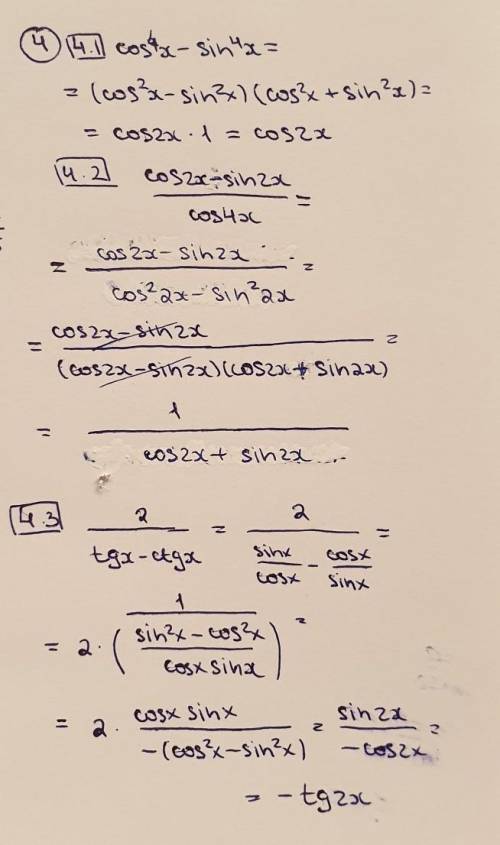 4 4.1 cos⁴x - sin⁴x =
= (cos²x - sin²x) (cos²x + sin²x) =
= cos2x · 1 = cos2x
4.2 (cos2x - sin2x)/(cos4x) =
= (cos2x - sin2x)/(cos²2x - sin²2x) =
= (cos2x - sin2x)/((cos2x - sin2x)(cos2x + sin2x)) =
= 1/(cos2x + sin2x)
4.3 2/(tgx - ctgx) = 2/(sinx/cosx - cosx/sinx) =
= 2 · (1/((sin²x - cos²x)/(cosx sinx))) =
= 2 · (cosx sinx)/(-(cos²x - sin²x)) = (sin2x)/(-cos2x) =
= - tg2x